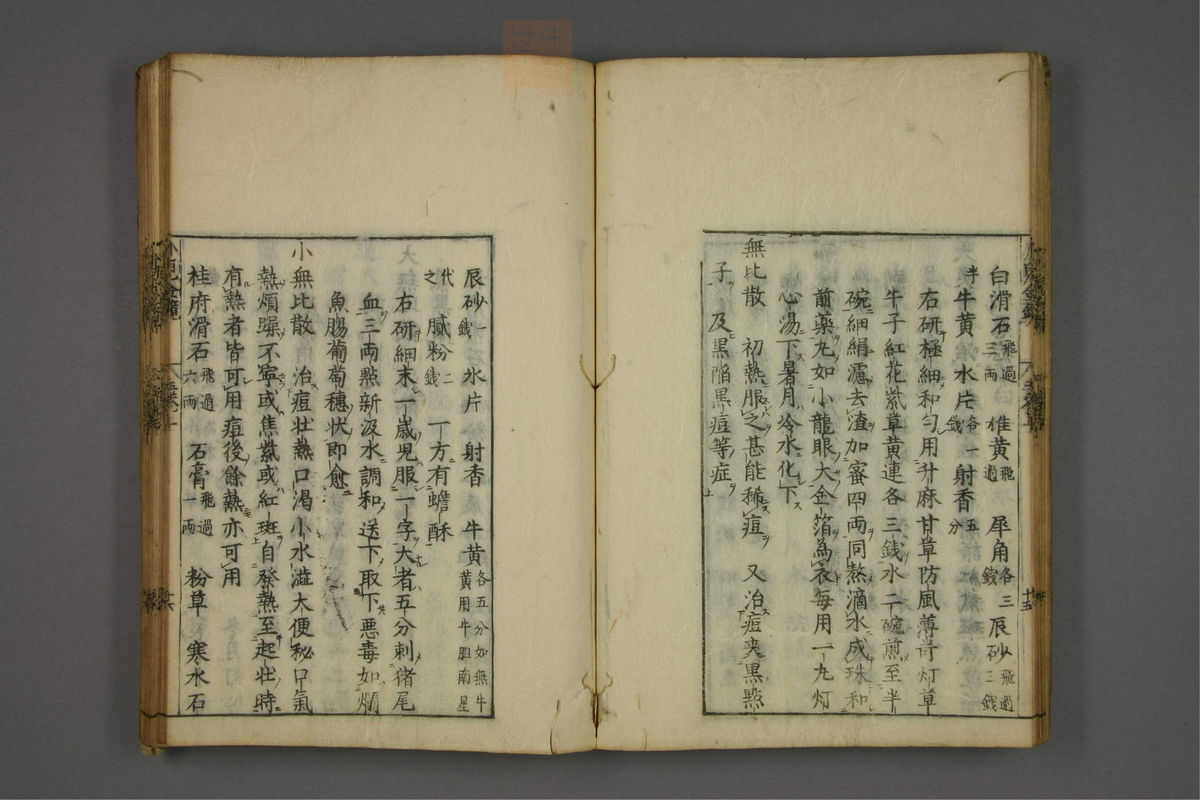 白滑石飛過三両 雄黄飛過 犀角各三銭 辰砂飛過三銭
半牛黄 氷片各一銭 射香五分
右研極細和匀用升麻甘草防風薄荷灯草
牛子紅花紫草黄連各三銭水二碗煎至半
碗細絹濾去渣加蜜四両同熬滴水成珠和
前薬丸如小龍眼大金箔為衣毎用一丸灯
心湯下暑月冷水化下
無比散 初熱服之甚能稀痘 又治痘夾黒點
子及黒陥黒痘等症
辰砂一銭 氷片 射香 牛黄各五分如無牛黄用牛胆南星
代之 膩粉二銭 一方有蟾酥
右研細末一歳児服一字大者五分刺猪尾
血三両點新汲水調和送下取下悪毒如爛
魚腸葡萄穗状即愈
小無比散 治痘壮熱口渇小水澁大便秘口氣
熱煩躁不寧或焦紫或紅斑自発熱至起壮時
有熱者皆可用痘後餘熱亦可用
桂府滑石飛過六両 石膏飛過一両 粉草 寒水石